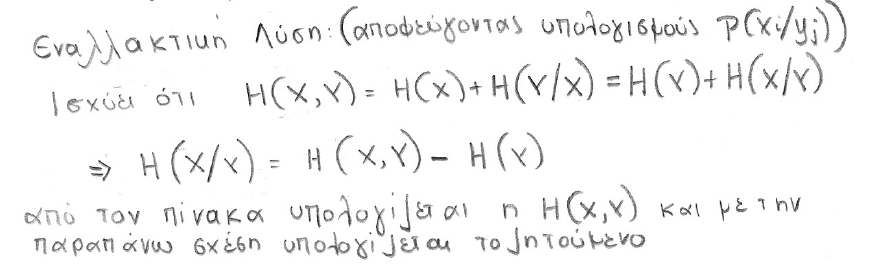 Εναλλακτική Λύση: (αποφεύγοντας υπολογισμούς P(xi/yj))
Ισχύει ότι H(X,Y) = H(X)+H(Y/X) = H(Y)+H(X/Y)
⇒ H(X/Y) = H(X,Y) − H(Y)
από τον πίνακα υπολογίζεται η H(X,Y) και με την
παραπάνω σχέση υπολογίζεται το ζητούμενο